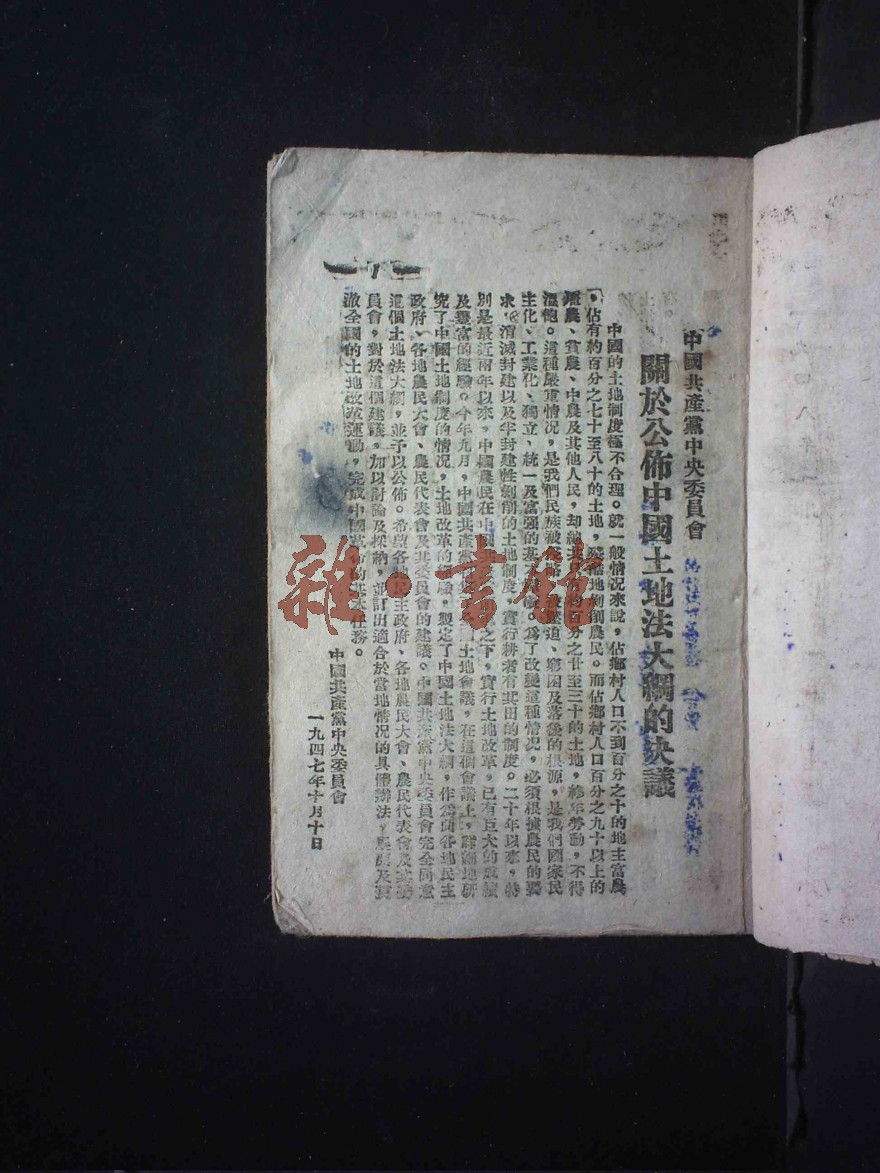 中國共產黨中央委員會
關於公佈中國土地法大綱的決議
中國的土地制度極不合理。就一般情況來說，佔鄉村人口不到百分之十的地主富農
，佔有約百分之七十至八十的土地，殘酷地剝削農民。而佔鄉村人口百分之九十以上的
農、貧農、中農及其他人民，却總共有約百分之廿至三十的土地，終年勞動，不得
溫飽。這種嚴重情況，是我們民族被迫、窮困及落後的根源，是我們國家民
主化、工業化、獨立、統一及富强的基本。爲了改變這種情況，必須根據農民的要
求，消滅封建以及半封建性剝削的土地制度，實行耕者有其田的制度。二十年以來，特
別是最近兩年以來，中國農民在中國之下，實行土地改革，已有巨大的成績
及豐富的經驗。今年九月，中國共產黨土地會議，在這個會議上，詳細地研
究了中國土地制度的情况，土地改革的經驗，製定了中國土地法大綱，作爲向各地民主
政府、各地農民大會、農民代表會及其委員會的建議。中國共產黨中央委員會完全同意
這個土地法大綱，並予以公佈。希望各民主政府、各地農民大會、農民代表會及其委
員會，對於這個建議，加以討論及採納，並訂出適合於當地情况的具體辦法，展開及貫
澈全國的土地改革運動，完成中國革命的基本任務。
中國共產黨中央委員會
一九四七年十月十日
1
雜·書館